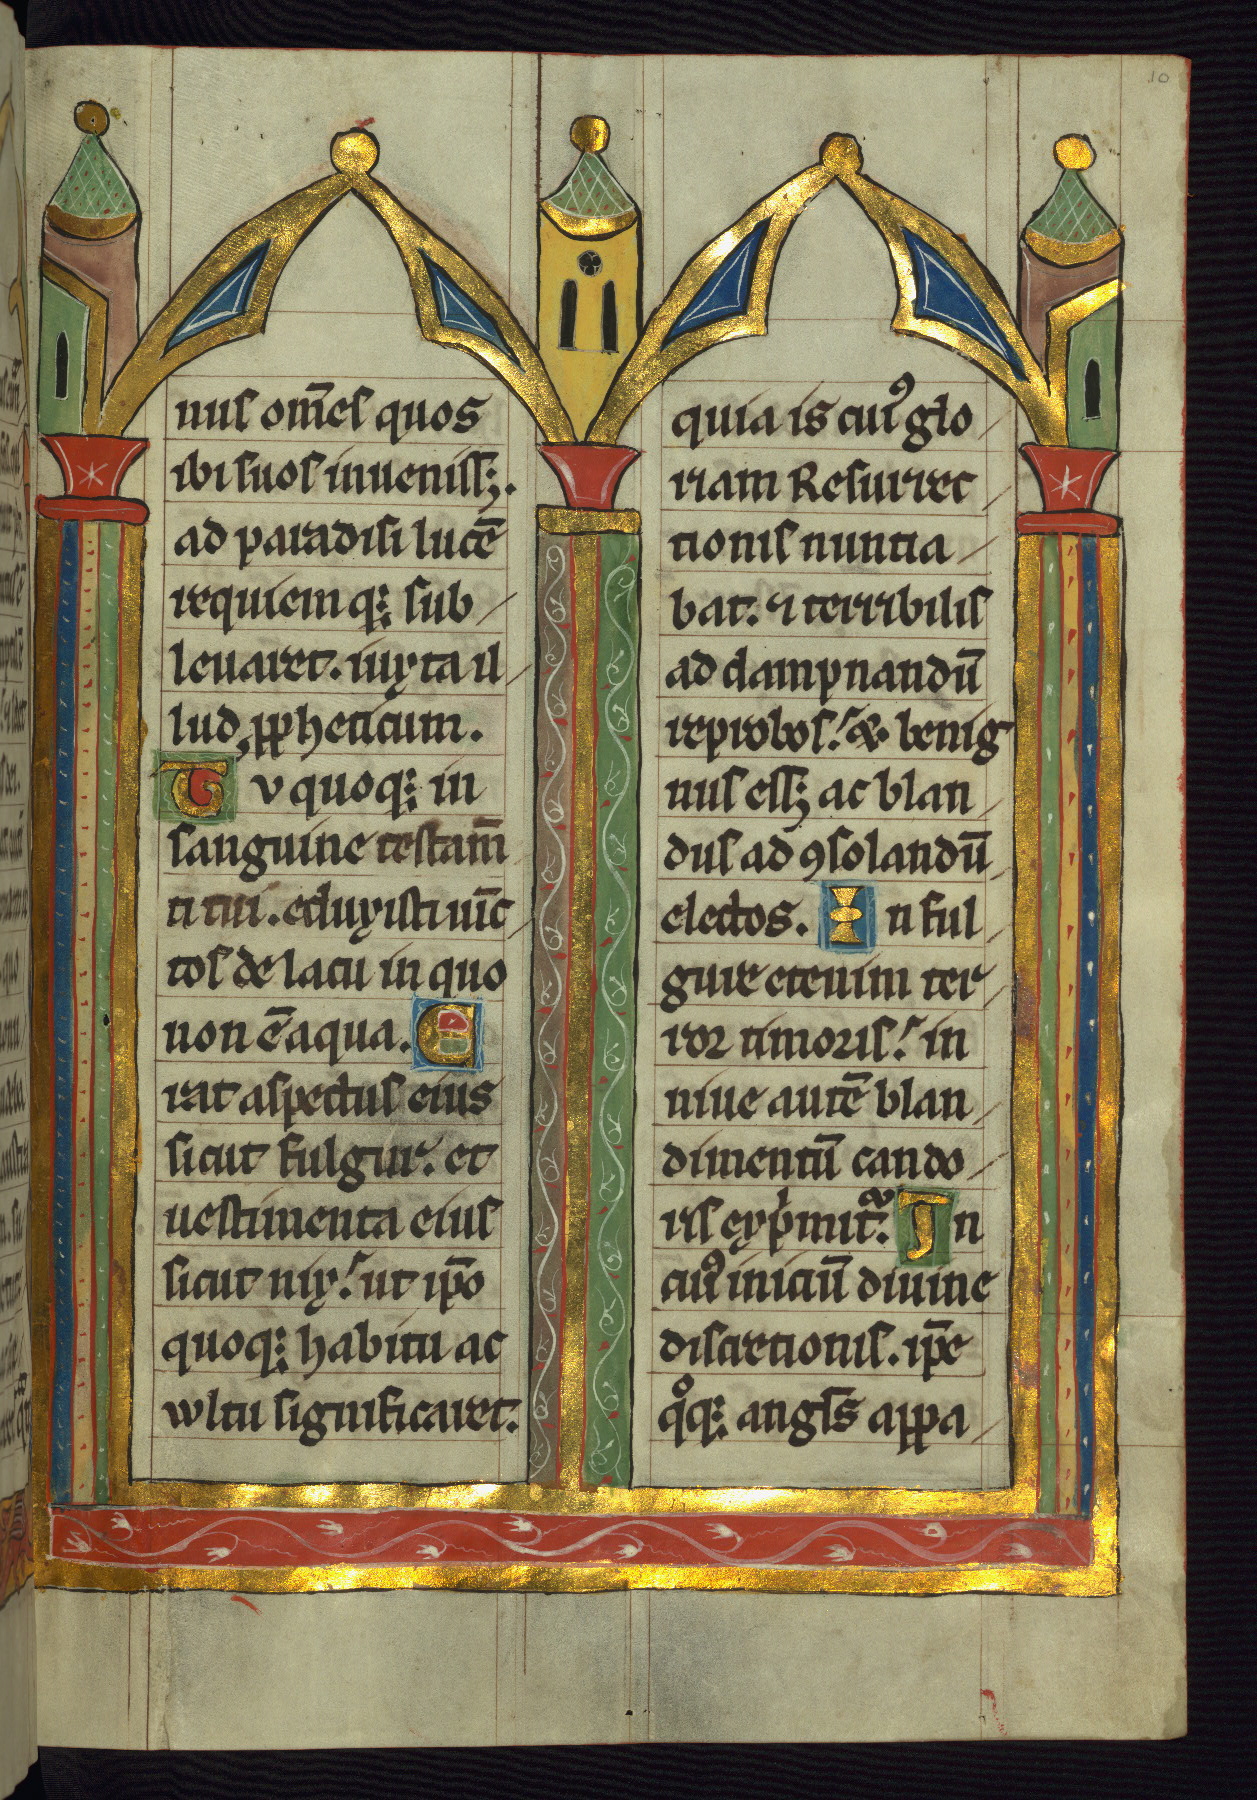 10
nus om̄es quos
ibi suos inuenissꝫ.
ad paradisi lucē
requiem qꝫ sub
leuaret. iuxta il
lud ꝓpheticum.
Tv quoqꝫ in
sanguine testam̄
ti tui. eduxisti uīc
tos de lacu in quo
non ē aqua. E
rat aspectus eius
sicut fulgur. et
uestimenta eius
sicut nix. ut ip̄o
quoqꝫ habitu ac
wltu significaret.
quia is cuiꝰ glo
riam Resurrec
tionis nuntia
bat. ⁊ terribilis
ad dampnandū
reprobos. & benig
nus essꝫ ac blan
dus ad ꝯsolandū
electos. In ful
gure etenim ter
ror timoris. in
niue autē blan
dimentū cando
ris exp̍mit᷑. In
cuiꝰ iniciū diuine
discretionis. ip̄e
qͦqꝫ angłs appa